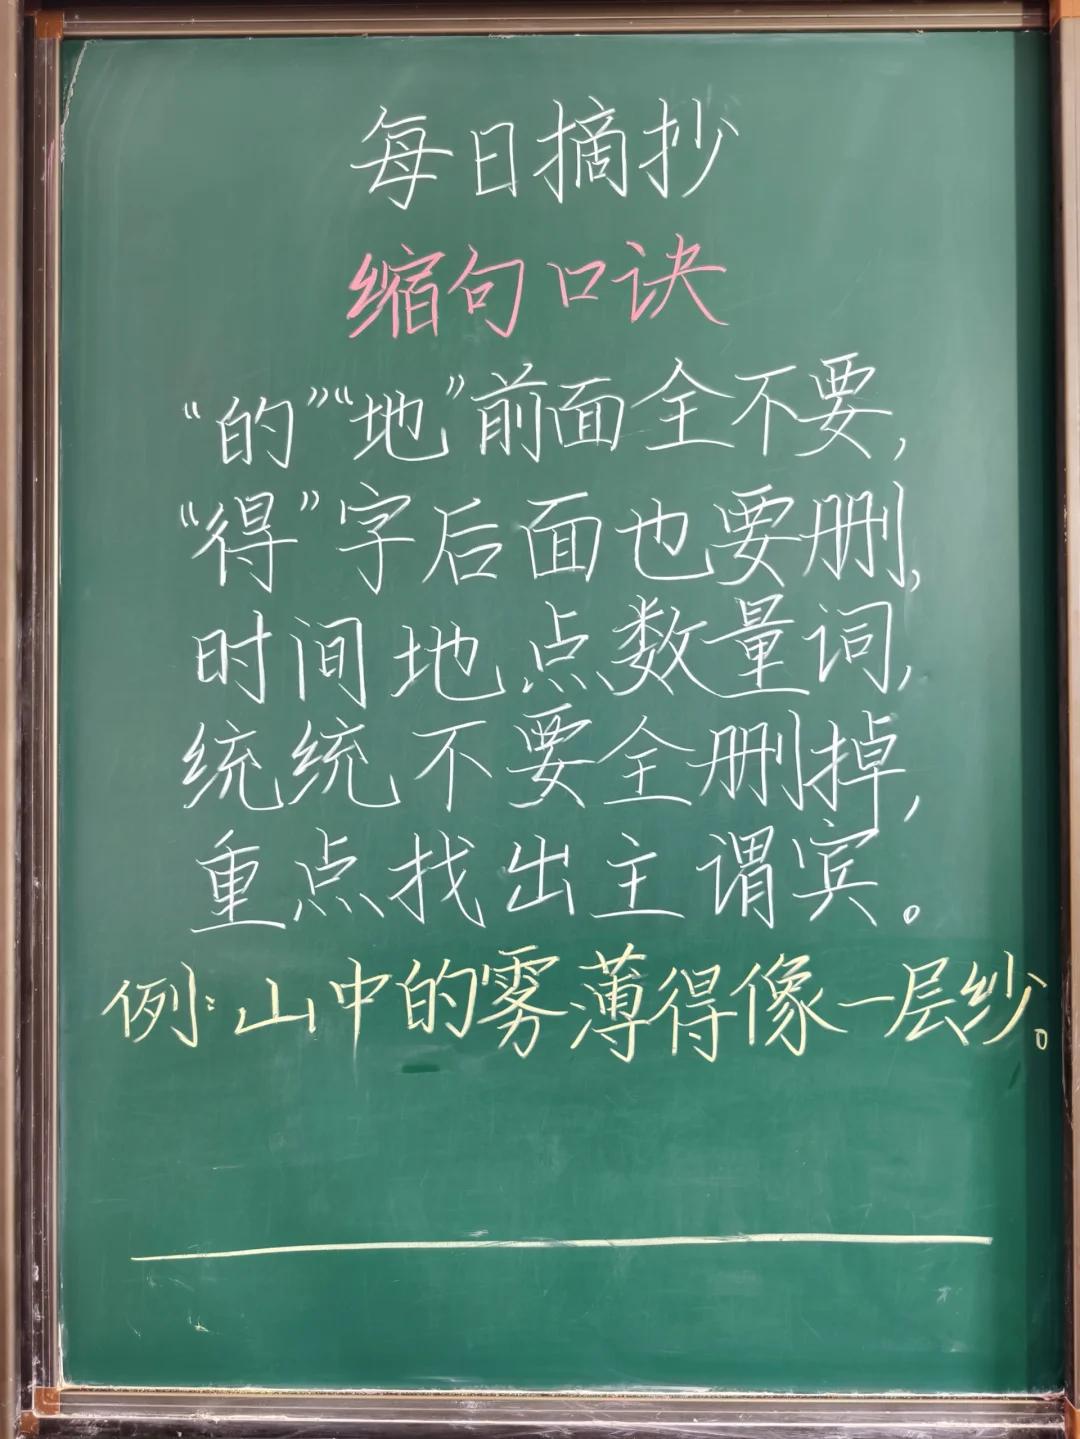 每日摘抄
缩句口诀
“的”“地”前面全不要,
“得”字后面也要删,
时间地点数量词,
统统不要全删掉,
重点找出主谓宾。
例:山中的雾薄得像一层纱。